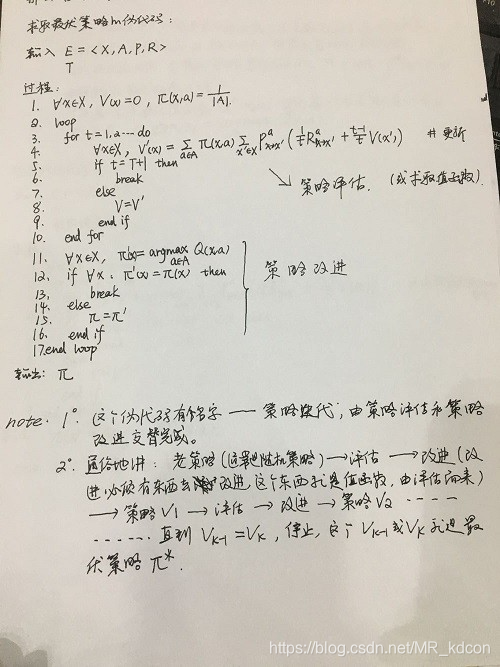 求取最优策略的伪代码：
输入 E = <X, A, P, R>
T
过程：
1. ∀x∈X, V(x)=0, π(x,a)=1/|A|.
2. loop
3. for t=1,2… do
4. ∀x∈X, V'(x)= Σ_{a∈A} π(x,a) Σ_{x'∈X} P^a_{x→x'} (1/t R^a_{x→x'} + t-1/t V(x')) # 更新
5. if t=T+1 then
6. break
↘ 策略评估. (或求取值函数).
7. else
8. V=V'
9. end if
10. end for
11. ∀x∈X, π'(x)=argmax_{a∈A} Q(x,a)
12. if ∀x, π'(x)=π(x) then
策略改进
13. break
14. else
15. π=π'
16. end if
17. end loop
输出: π
note. 1°. 这个伪代码有个名字 —— 策略迭代，由策略评估和策略
改进交替完成。
2°. 通俗地讲: 老策略(这里是随机策略) → 评估 → 改进 (改
进必须有东西去改进，这个东西就是值函数，由评估而来)
→ 策略V1 → 评估 → 改进 → 策略V2 ……
…… 直到 V_{K-1}=V_K, 停止, 这个 V_{K-1} 或 V_K 就是最
优策略 π*.
https://blog.csdn.net/MR_kdcon